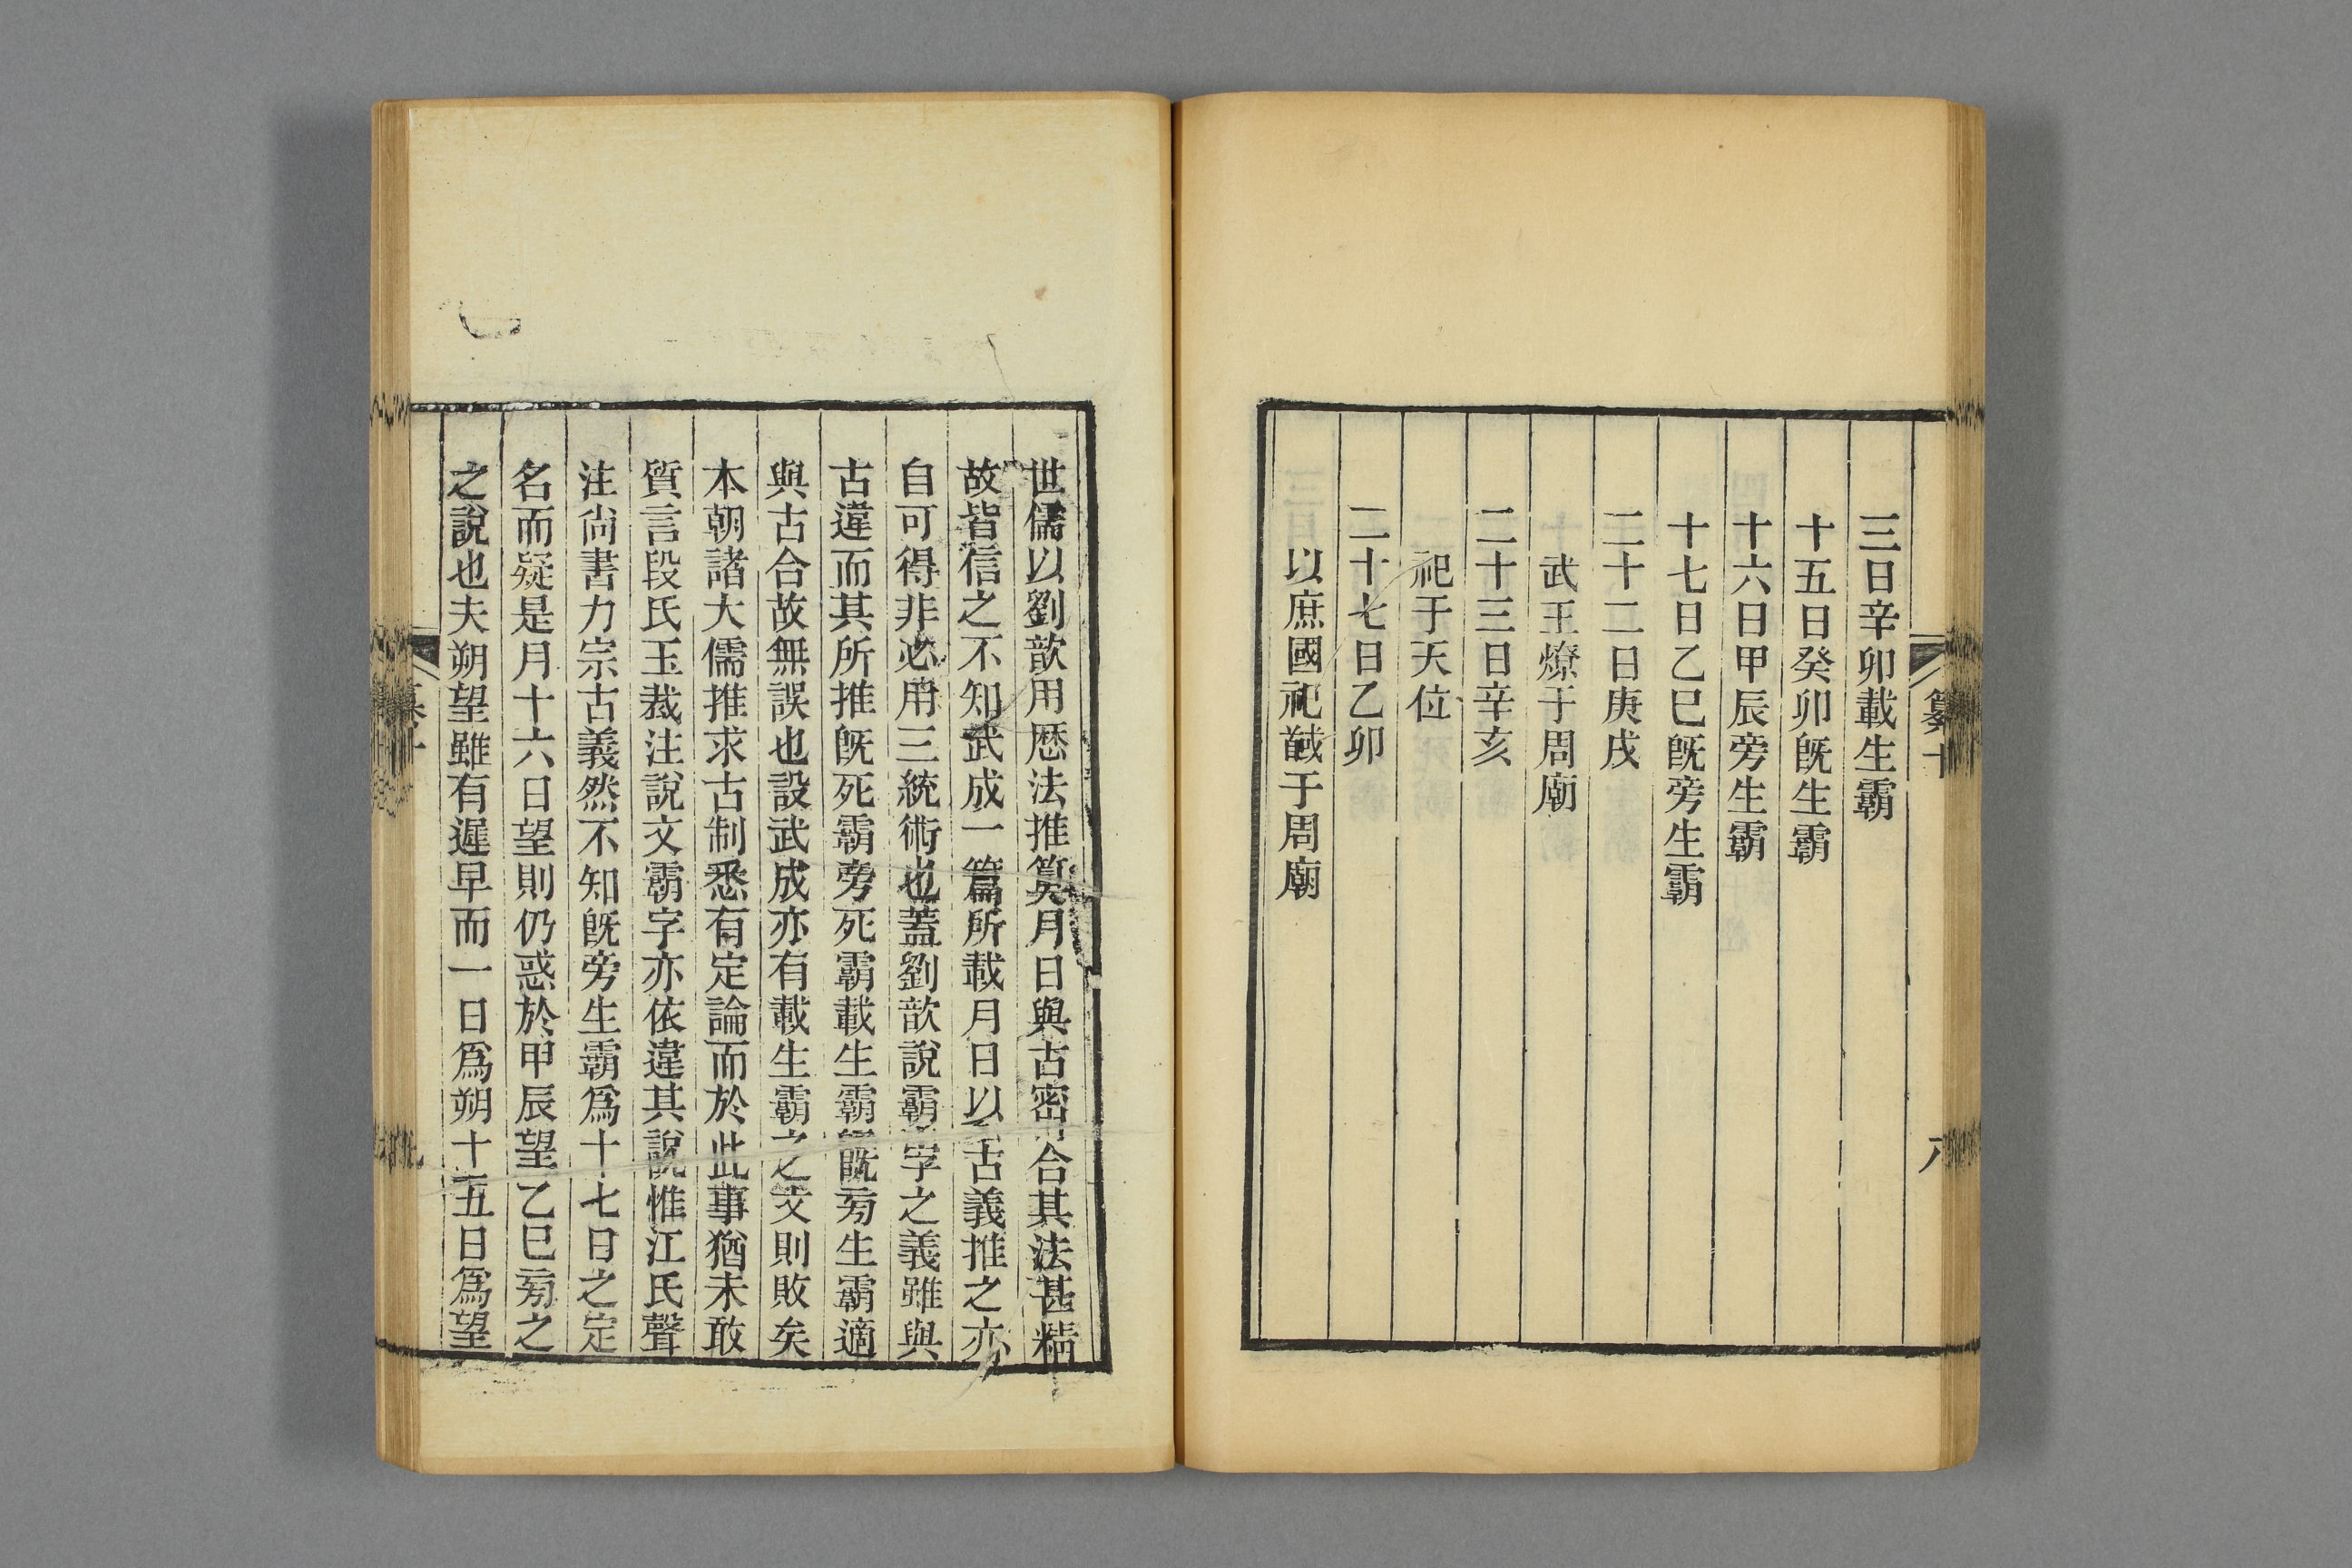 三日辛卯載生霸
十五日癸卯旣生霸
十六日甲辰旁生霸
十七日乙巳旣旁生霸
二十二日庚戌
武王燎于周廟
二十三日辛亥
祀于天位
二十七日乙卯
以庶國祀馘于周廟
世儒以劉歆用厯法推算月日與古密合其法甚精
故皆信之不知武成一篇所載月日以古義推之亦
自可得非必用三統術也蓋劉歆說霸字之義雖與
古違而其所推旣死霸旁死霸載生霸旣旁生霸適
與古合故無誤也設武成亦有載生霸之文則敗矣
本朝諸大儒推求古制悉有定論而於此事猶未敢
質言段氏玉裁注說文霸字亦依違其說惟江氏聲
注尚書力宗古義然不知旣旁生霸爲十七日之定
名而疑是月十六日望則仍惑於甲辰望乙巳旁之
之說也夫朔望雖有遲早而一日爲朔十五日爲望
纂十
八